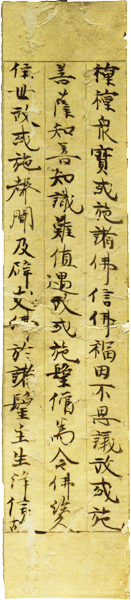 種種眾寶或施諸佛信佛福田不思議故或施
菩薩知善知識難值遇故或施聖僧為令佛法久
住世故或施聲聞及辟支佛於諸聖主生淨信故